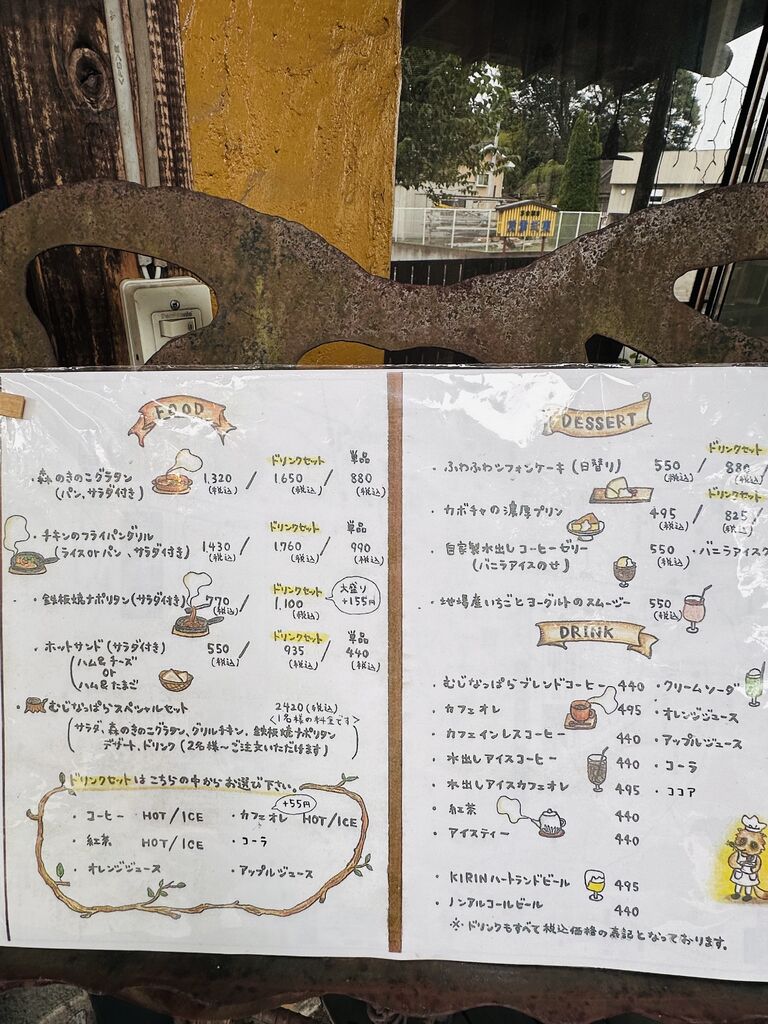 FOOD
ドリンクセット 単品
・森のきのこグラタン 1,320 / 1650 / 880
(パン、サラダ付き) (税込) (税込) (税込)
ドリンクセット 単品
・チキンのフライパングリル
(ライスorパン、サラダ付き) 1,430 / 1,760 / 990
(税込) (税込) (税込)
ドリンクセット 大盛り
+155円
・鉄板焼ナポリタン(サラダ付き) 770 / 1,100
(税込) (税込)
ドリンクセット 単品
・ホットサンド(サラダ付き) 550 / 935 / 440
(税込) (税込) (税込)
ハム&チーズ
or
ハム&たまご
・むじなっぱらスペシャルセット 2420(税込)
<1名様の料金です>
(サラダ、森のきのこグラタン、グリルチキン、鉄板焼ナポリタン
デザート、ドリンク(2名様〜ご注文いただけます)
ドリンクセットはこちらの中からお選び下さい。
+55円
・コーヒー HOT/ICE ・カフェオレ HOT/ICE
・紅茶 HOT/ICE ・コーラ
・オレンジジュース ・アップルジュース
DESSERT
ドリンクセット
・ふわふわシフォンケーキ(日替り) 550 / 880 /
(税込) (税込)
ドリンクセット
・カボチャの濃厚プリン 495 / 825 /
(税込) (税込)
・自家製水出しコーヒーゼリー 550 ・バニラアイス
(バニラアイスのせ) (税込)
・地場産いちごとヨーグルトのスムージー 550
(税込)
DRINK
・むじなっぱらブレンドコーヒー 440 ・クリームソーダ
・カフェオレ 495 ・オレンジジュース
・カフェインレスコーヒー 440 ・アップルジュース
・水出しアイスコーヒー 440 ・コーラ
・水出しアイスカフェオレ 495 ・ココア
・紅茶 440
・アイスティー 440
・KIRINハートランドビール 495
・ノンアルコールビール 440
※ドリンクもすべて税込価格の表記となっております。